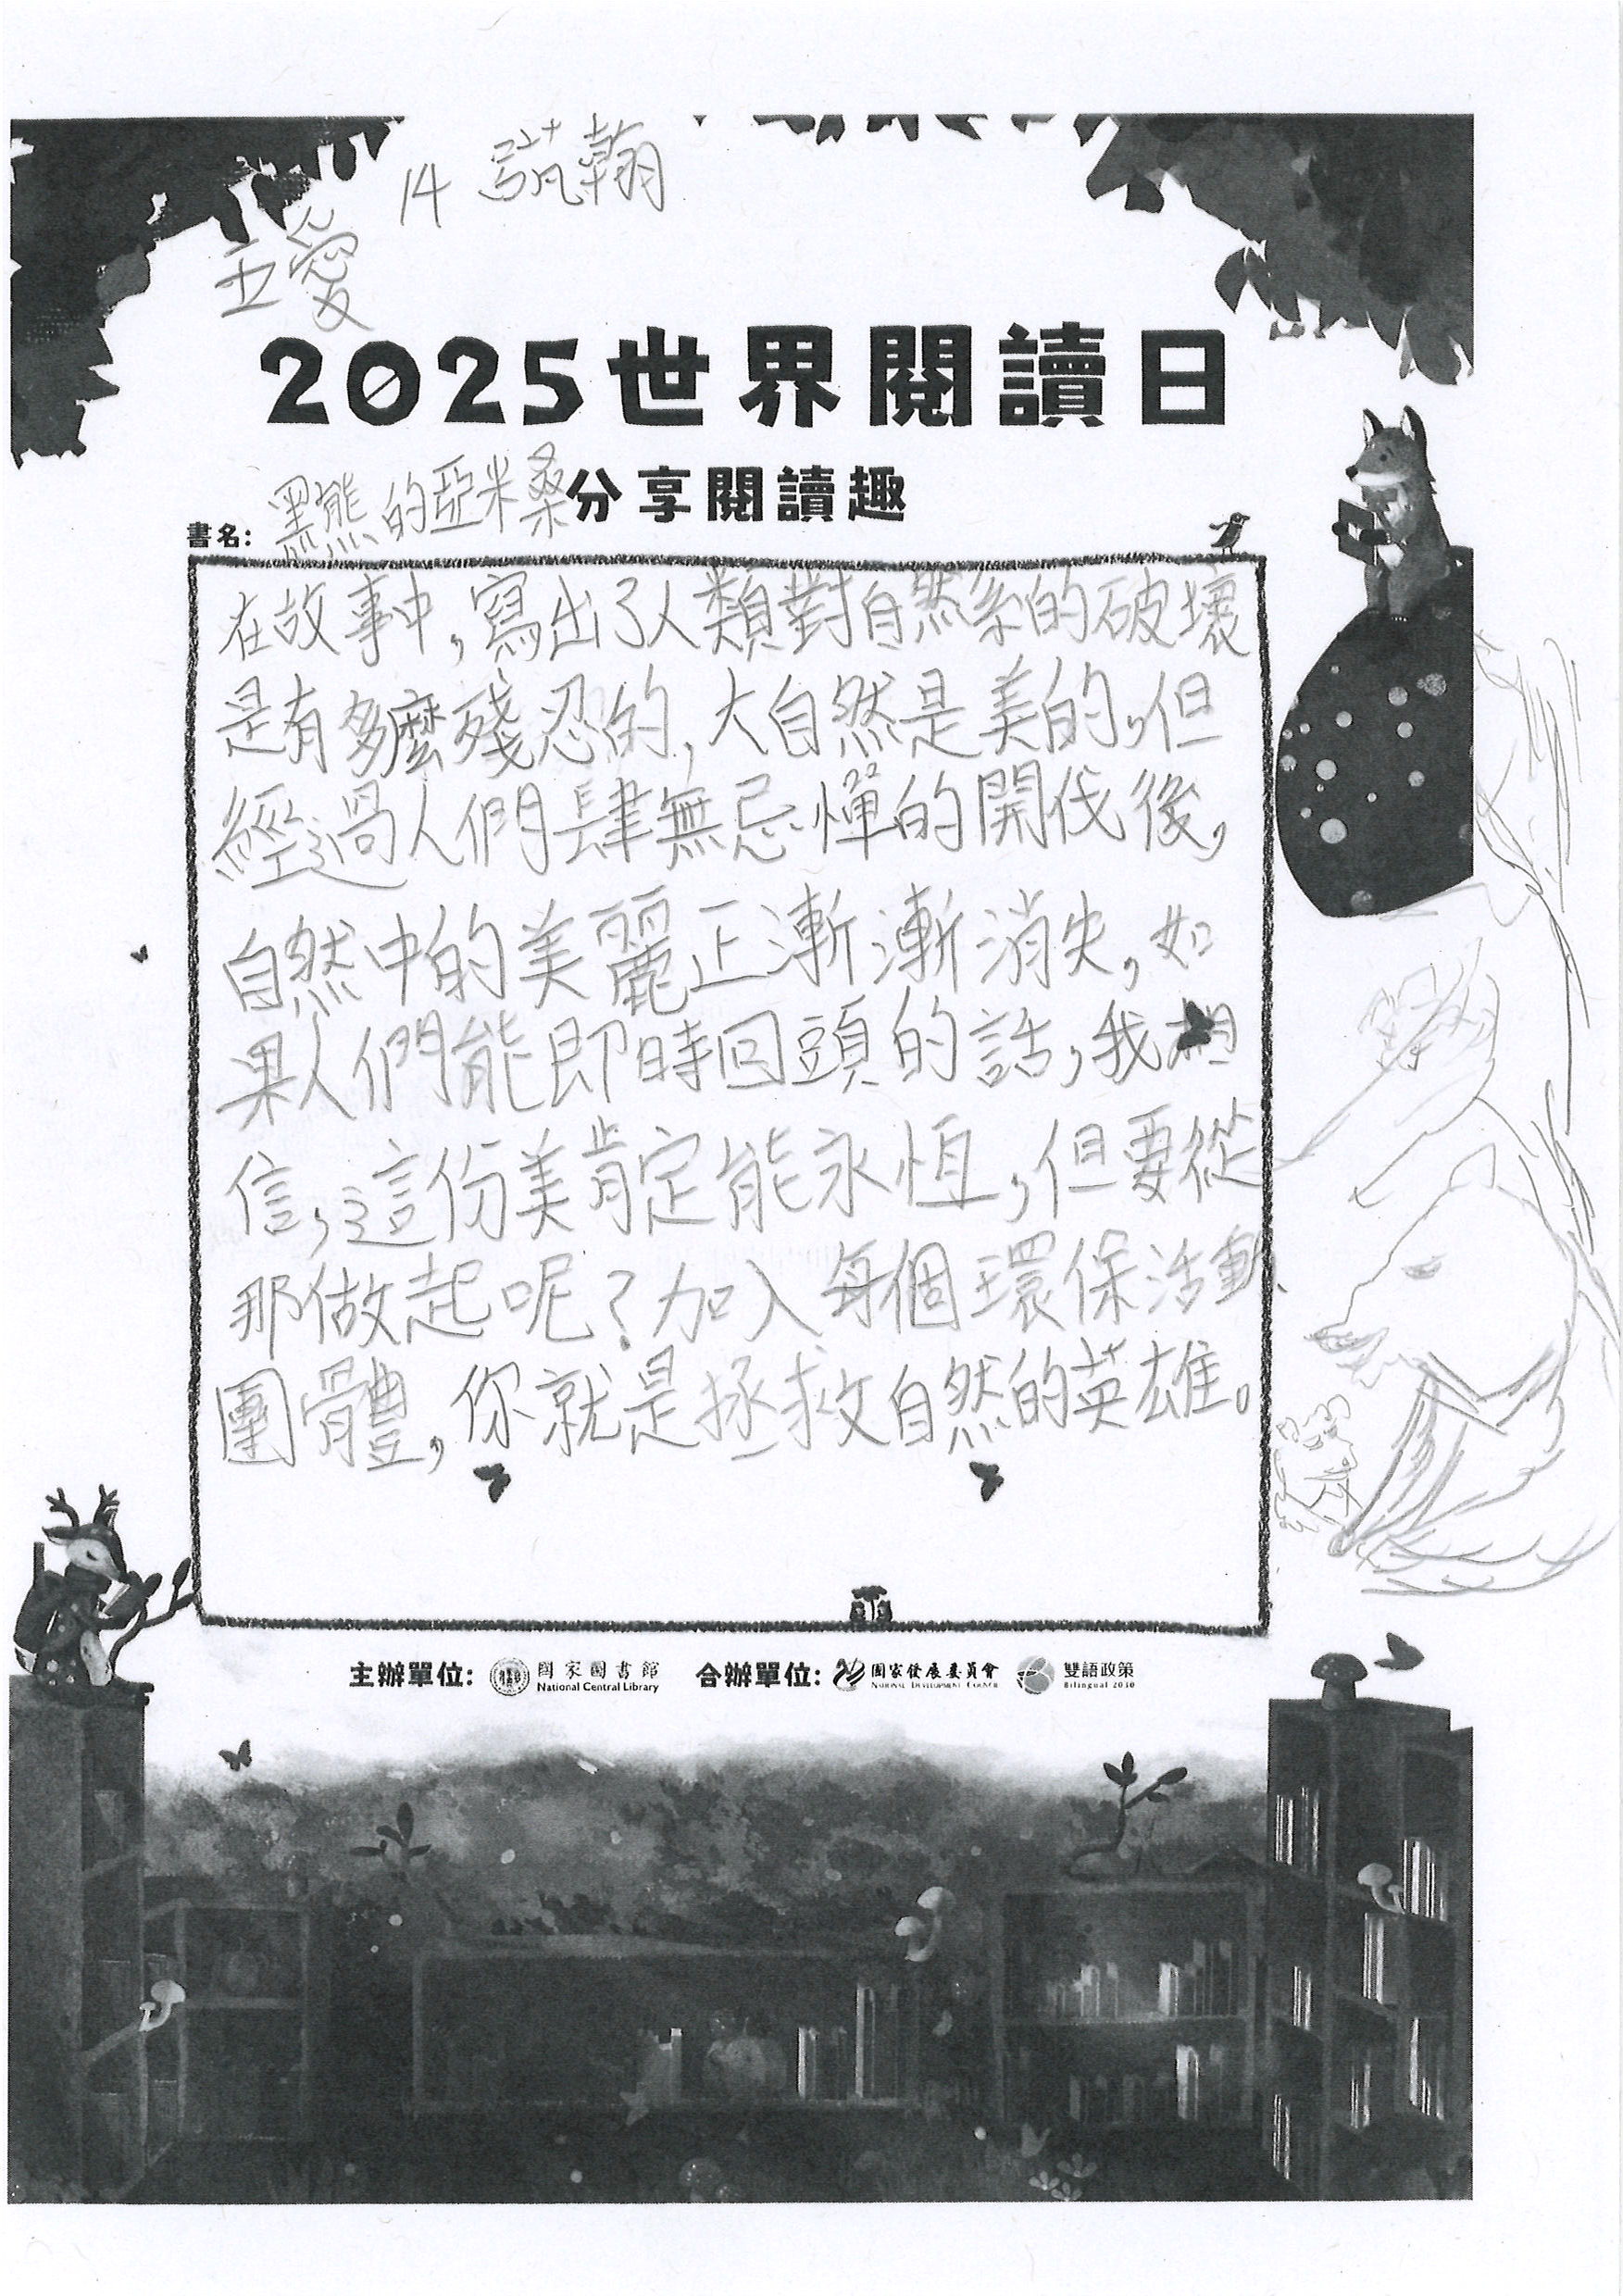 14 䓯翰
五愛
2025世界閱讀日
分享閱讀趣
書名: 黑熊的亞米桑
在故事中,寫出了人類對自然系的破壞
是有多麼殘忍的,大自然是美的,但
經過人們肆無忌憚的開伐後,
自然中的美麗正漸漸消失,如
果人們能即時回頭的話,我相
信,這份美肯定能永恆,但要從
那做起呢?加入每個環保活動、
團體,你就是拯救自然的英雄。
主辦單位: 國家圖書館 National Central Library 合辦單位: 國家發展委員會 National Development Council 雙語政策 Bilingual 2030